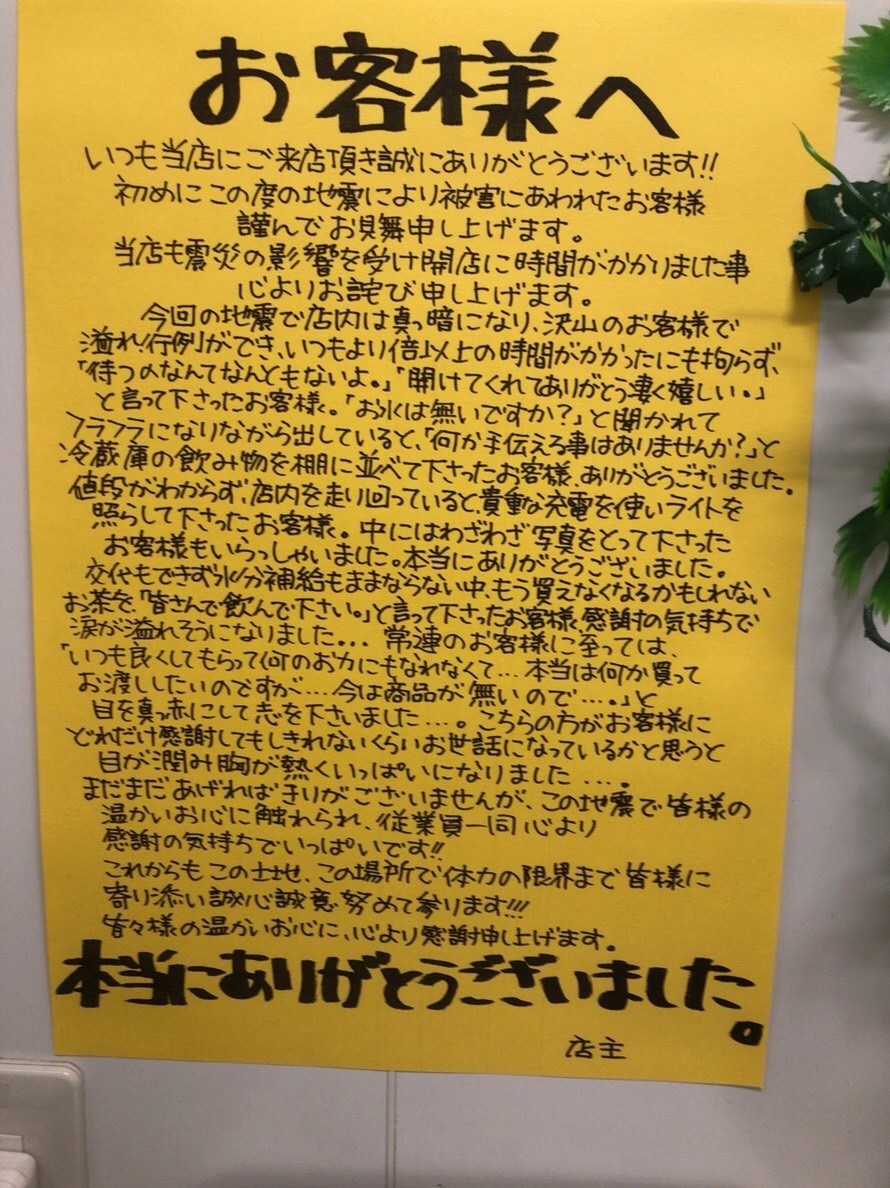 お客様へ
いつも当店にご来店頂き誠にありがとうございます!!
初めにこの度の地震により被害にあわれたお客様
謹んでお見舞申し上げます。
当店も震災の影響を受け開店に時間がかかりました事
心よりお詫び申し上げます。
今回の地震で店内は真っ暗になり、沢山のお客様で
溢れ、行列ができ、いつもより倍以上の時間がかかったにも拘らず、
「待つのなんてなんともないよ。」「開けてくれてありがとう凄く嬉しい。」
と言って下さったお客様。「お水は無いですか?」と聞かれて
フラフラになりながら出していると、「何か手伝える事はありませんか?」と
冷蔵庫の飲み物を棚に並べて下さったお客様、ありがとうございました。
値段がわからず、店内を走り回っていると、貴重な充電を使いライトを
照らして下さったお客様。中にはわざわざ写真をとって下さった
お客様もいらっしゃいました。本当にありがとうございました。
交代もできず水分補給もままならない中、もう買えなくなるかもしれない
お茶を、「皆さんで飲んで下さい。」と言って下さったお客様、感謝の気持ちで
涙が溢れそうになりました... 常連のお客様に至っては、
「いつも良くしてもらって何のお力にもなれなくて...本当は何か買って
お渡ししたいのですが...今は商品が無いので....」と
目を真っ赤にして志を下さいました...。こちらの方がお客様に
どれだけ感謝してもしきれないくらいお世話になっているかと思うと
目が潤み胸が熱くいっぱいになりました....
まだまだあげればきりがございませんが、この地震で皆様の
温かいお心に触れられ、従業員一同心より
感謝の気持ちでいっぱいです!!
これからもこの土地、この場所で体力の限界まで皆様に
寄り添い誠心誠意努めて参ります!!!
皆々様の温かいお心に、心より感謝申し上げます。
本当にありがとうございました。
店主